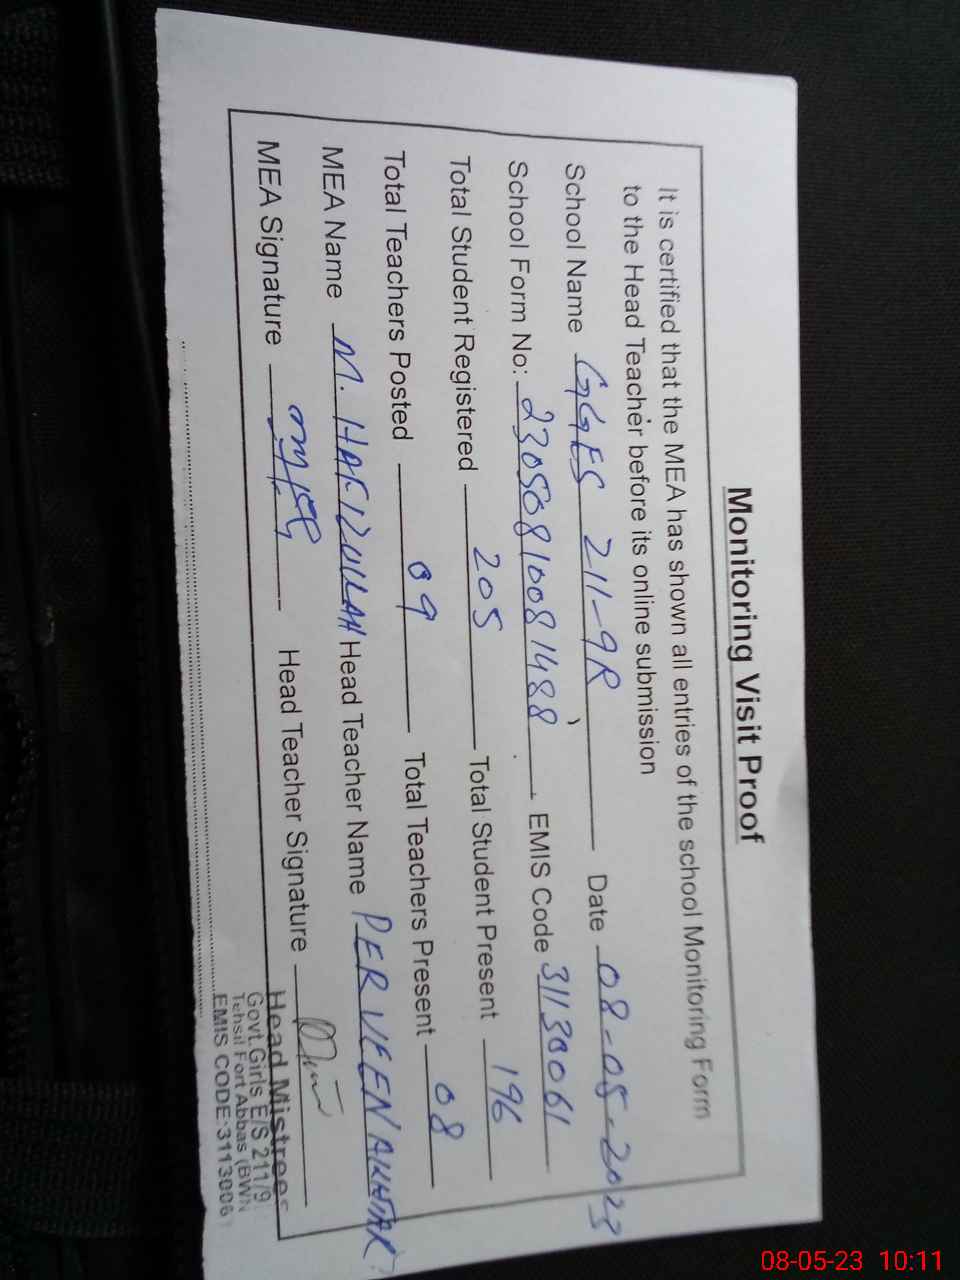 Monitoring Visit Proof
It is certified that the MEA has shown all entries of the school Monitoring Form
to the Head Teacher before its online submission
School Name GGES 211-9R Date 08-05-2023
School Form No: 23050810081488 EMIS Code 31130061
Total Student Registered 205 Total Student Present 196
Total Teachers Posted 09 Total Teachers Present 08
MEA Name M. HAFIZULLAH Head Teacher Name PERVEEN AKHTAR
MEA Signature Head Teacher Signature
Head Mistress
Govt. Girls E/S 211/9
Tehsil Fort Abbas (BWN
EMIS CODE:31130061
08-05-23 10:11